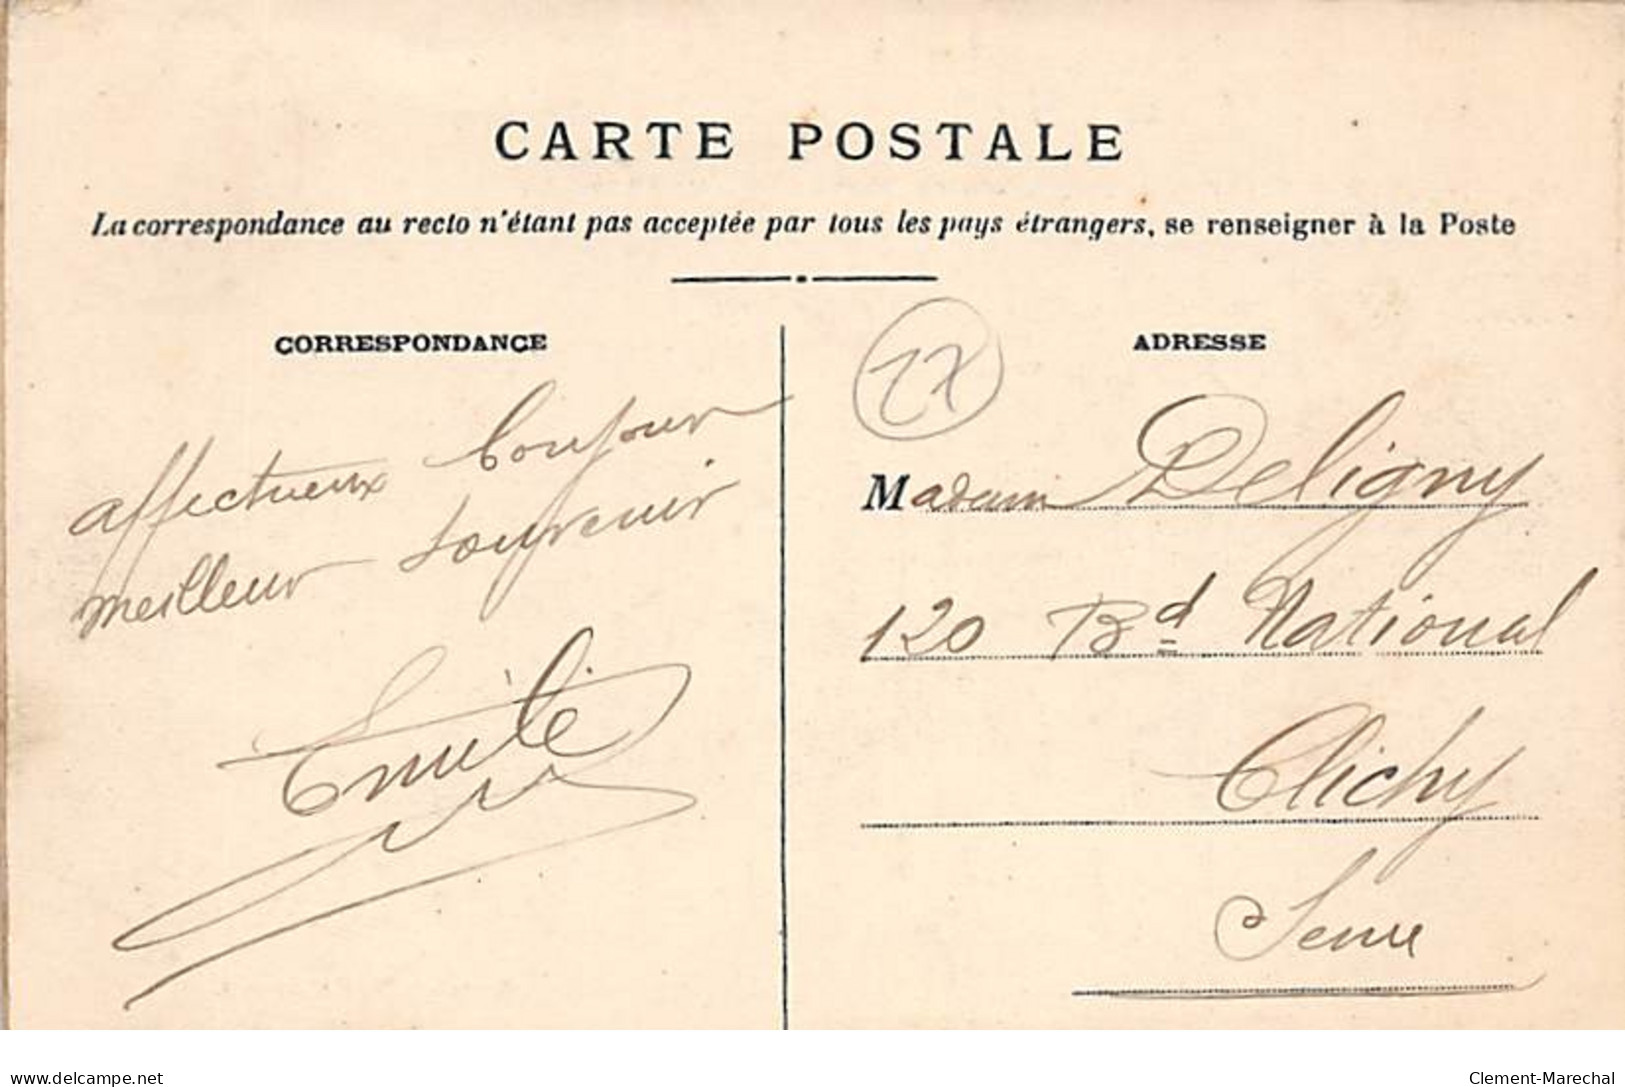 CARTE POSTALE
La correspondance au recto n'étant pas acceptée par tous les pays étrangers, se renseigner à la Poste
CORRESPONDANCE
affectueux bonjour
meilleur souvenir
Emile
ADRESSE
Madame Deligny
120 Bd National
Clichy
Seine
delcampe.net
Clement-Marechal